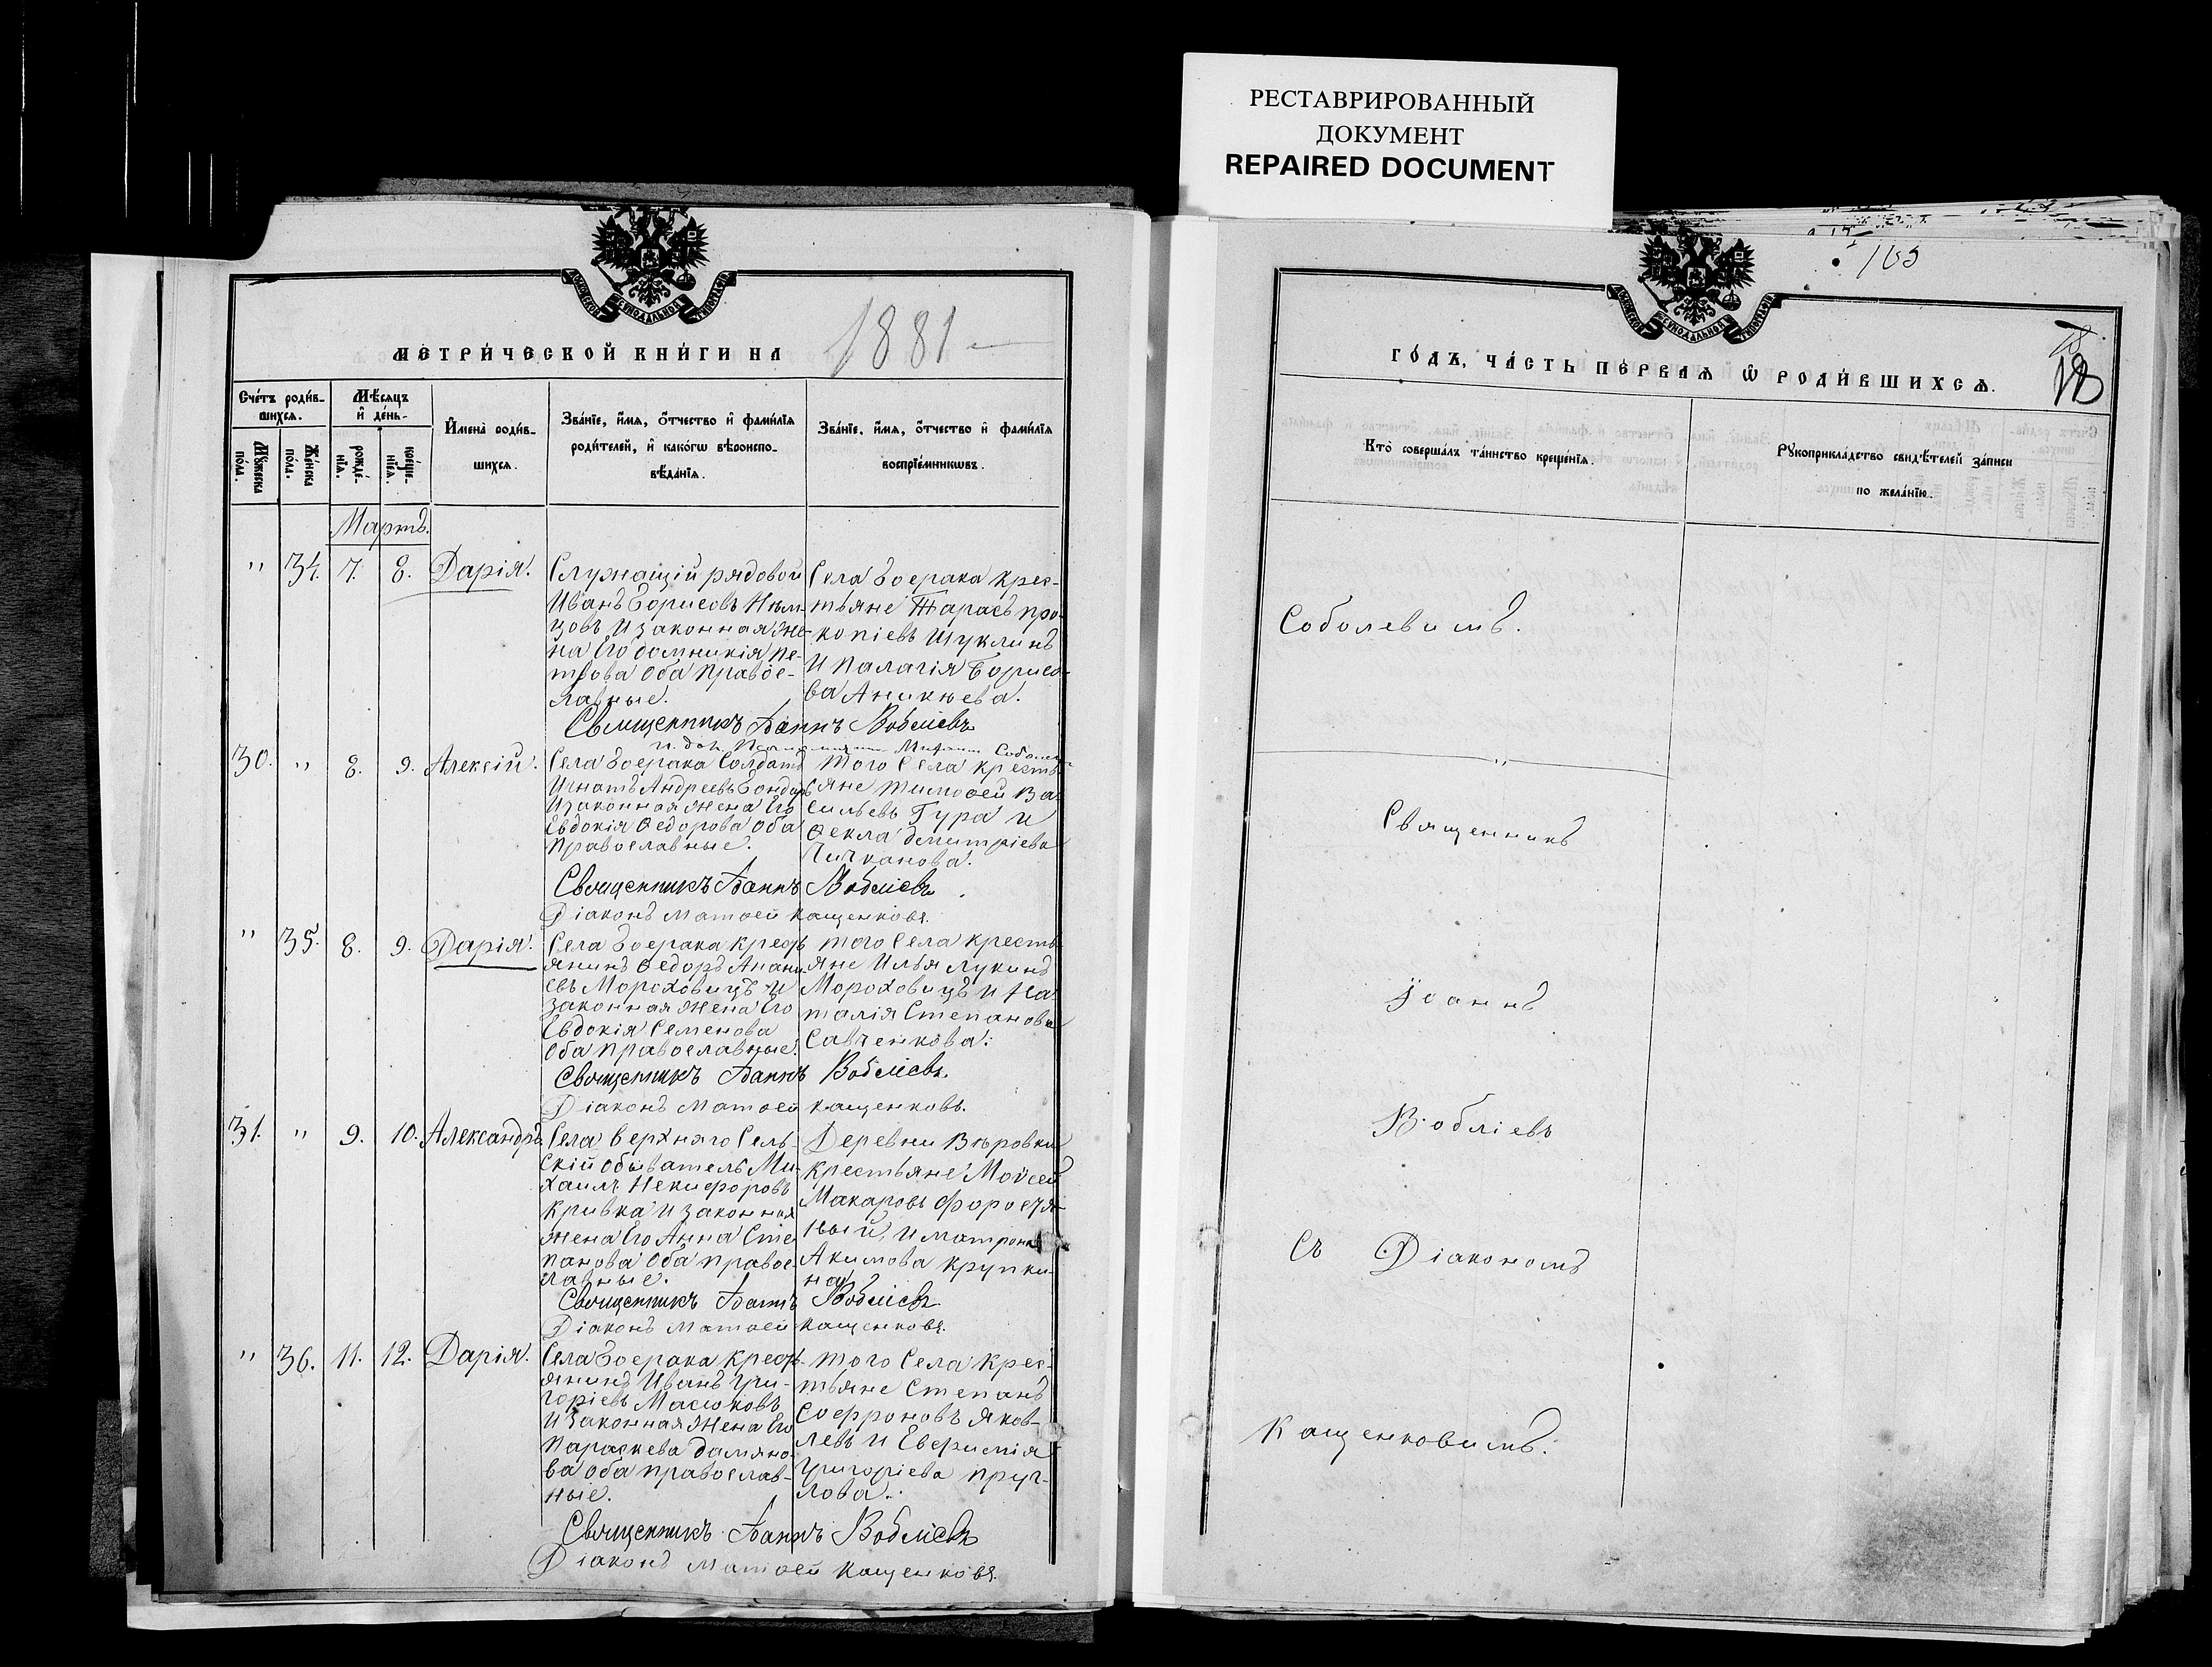 РЕСТАВРИРОВАННЫЙ
ДОКУМЕНТ
REPAIRED DOCUMENT
МЕТРИ́ЧЕСКОЙ КНИ́ГИ НА 1881
Сче́тъ роди́в-
шихся.
Мѣсяцъ
и҆ де́нь.
Мꙋжеска
по́ла.
Же́нска
по́ла.
рожде́-
нїя.
креще́-
нїя.
И҆мена̀ роди́в-
шихся.
Зва́нїе, и҆́мя, ѻ҆́тчество и҆ фами́лїя
роди́телей, и҆ како́гѡ вѣроиспо-
вѣ́данїя.
Зва́нїе, и҆́мя, ѻ҆́тчество и҆ фами́лїя
воспрїе́мникѡвъ.
Мартъ.
" 34. 7. 8. Дарія.
Служащій рядовой
Иванъ Борисовъ Нѣм-
цовъ и законная же-
на Его домникія пе-
трова оба право-
славные.
Села Боерака крес-
тьяне Тарасъ про-
копіевъ Шуклинъ
и палагія Борисо-
ва Аникѣева.
Священникъ Іоаннъ Вобліевъ
30. " 8. 9. Алексій.
Села Боерака Солдатъ
Игнатъ Андреевъ Бондарь
И законная жена Его
Евдокія Ѳедорова оба
православные.
того Села кресть-
яне тимоѳей Ва-
сильевъ Гура и
Ѳекла дмитріева
Священникъ Іоаннъ Вобліевъ
Діаконъ Матѳей Кащенковъ.
" 35. 8. 9. Дарія.
Села Боерака крест-
янинъ Ѳедоръ Анани-
евъ Мороховецъ и
законная жена Его
Евдокія Семенова
Оба православные.
того Села кресть-
яне Илья лукинъ
Мороховецъ и На-
талія Степанова
Савченкова.
Священникъ Іоаннъ Вобліевъ.
Діаконъ Матѳей Кащенковъ.
31. " 9. 10. Александръ
Села верхняго Сель-
скій обыватель Ми-
хаилъ Никифоровъ
Кривка и законная
жена Его Анна Сте-
панова оба правос-
лавные.
Деревни Вѣровки
крестьяне Моѵсей
Макаровъ Форостя-
ный, и матрона
Акимова крупки-
на
Священникъ Іоаннъ Вобліевъ
Діаконъ Матѳей Кащенковъ.
" 36. 11. 12. Дарія.
Села Боерака крест-
янинъ Иванъ Гри-
горіевъ Масюковъ
и законная жена Его
параскева дамяно-
ва оба православ-
ные.
того Села крес-
тьяне Степанъ
Софроновъ Яков-
левъ и Евфимія
Григоріева
Священникъ Іоаннъ Вобліевъ
Діаконъ Матѳей Кащенковъ.
ГО́ДЪ, ЧА́СТЬ ПЕ́РВАЯ Ѡ҆ РОДИ́ВШИХСЯ.
Кто̀ соверша́лъ та́инство креще́нїя.
Рꙋкоприкла́дство свидѣ́телей за́писи
по жела́нїю.
Соболевымъ.
Священникъ
Іоаннъ
Вобліевъ
Съ Діакономъ
Кащенковымъ.